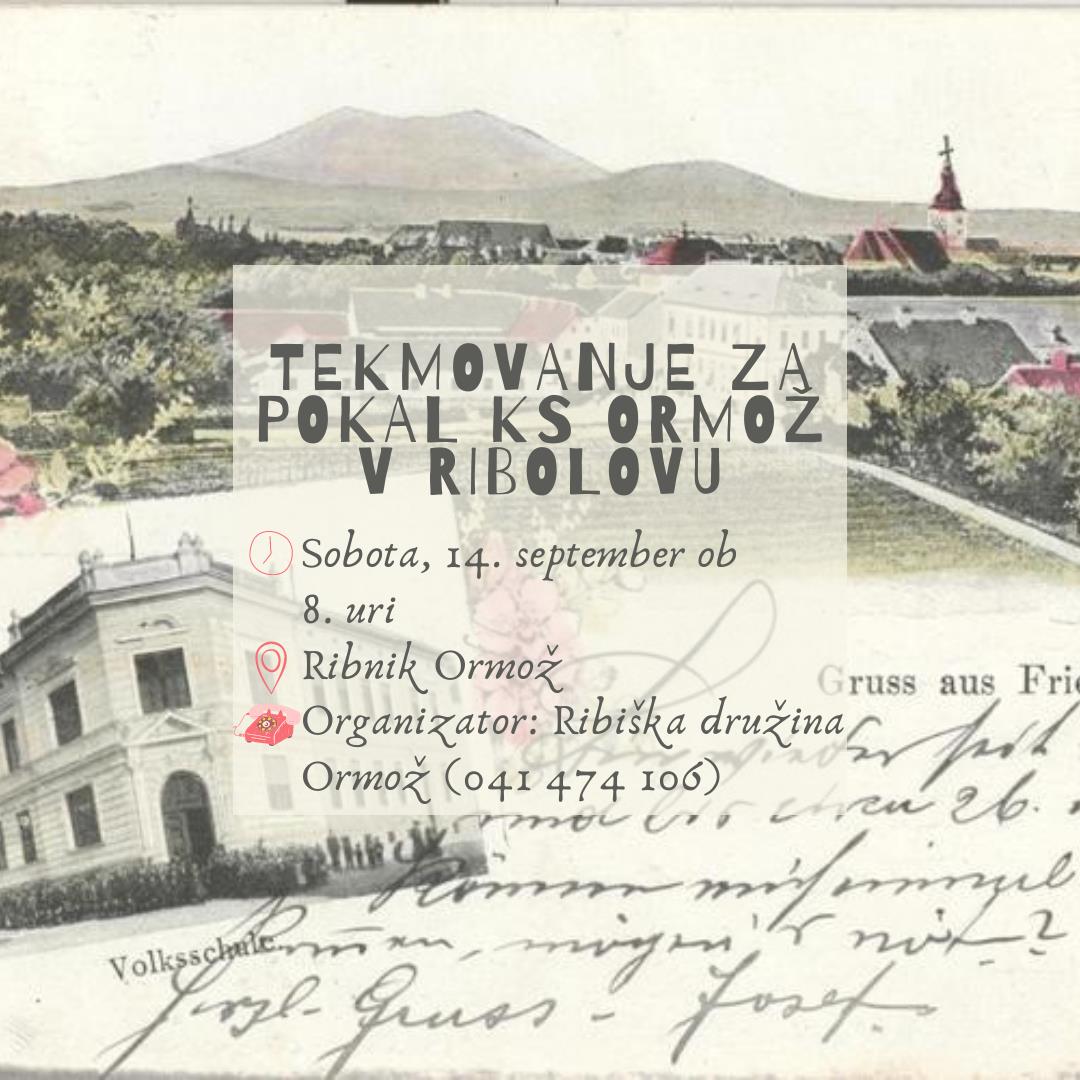 TEKMOVANJE ZA
POKAL KS ORMOŽ
V RIBOLOVU
Sobota, 14. september ob
8. uri
Ribnik Ormož
Organizator: Ribiška družina
Ormož (041 474 106)
Gruss aus Frie
26.
Volksschule.
mögen's
Gruss - Josef.